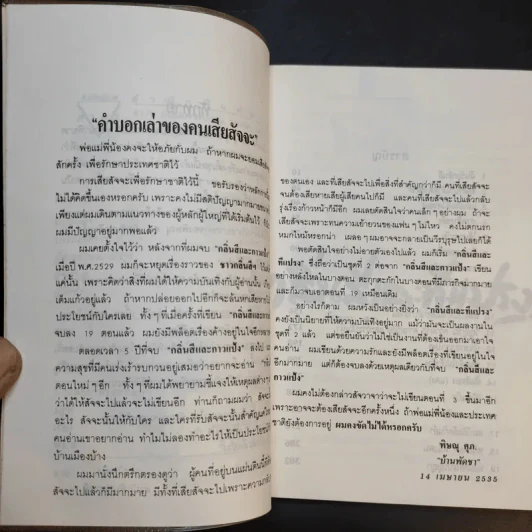 "คำบอกเล่าของคนเสียสัจจะ"
พ่อแม่พี่น้องคงจะให้อภัยกับผม ถ้าหากผมจะขอผม
สักครั้ง เพื่อรักษาประเทศชาติไว้
การเสียสัจจะเพื่อรักษาชาติไว้นี้ ขอรับรองว่าหลักการนี้
ไม่ได้คิดขึ้นเองหรอกครับ เพราะคงไม่มีสติปัญญามากมาย
เพียงแต่ผมเดินตามแนวทางของผู้หลักผู้ใหญ่ที่ได้เริ่มต้นไว้
ผมมีปัญญาอยู่มากพอแล้ว
ผมเคยตั้งใจไว้ว่า หลังจากที่ผมจบ "กลิ่นสีและกาวแป้ง"
เมื่อปี พ.ศ.2529 ผมก็จะหยุดเรื่องราวของ ชาวกลิ่นสี ไว้
แค่นั้น เพราะคิดว่าสิ่งที่ผมได้ให้ความบันเทิงกับผู้อ่านนั้น
เติมแก้วอยู่แล้ว ถ้าหากปล่อยออกไปอีกก็จะล้นหกเสีย
ประโยชน์กับใครเลย ทั้ง ๆ ที่เมื่อครั้งที่เขียน "กลิ่นสีและกาวแป้ง"
จบลง 19 ตอนแล้ว ผมยังมีพล็อตเรื่องค้างอยู่ในใจอีก
ตลอดเวลา 5 ปีที่จบ "กลิ่นสีและกาวแป้ง" ลงไป
ความสุขที่มีคนเร่งเร้ารบกวนอยู่เสมอว่าอยากจะอ่าน
ตอนใหม่ ๆ อีก ทั้ง ๆ ที่ผมได้พยายามชี้แจงให้เหตุผลต่าง ๆ
ว่าได้ให้สัจจะไปแล้วจะไม่เขียนอีก ท่านก็ถามผมว่า สัจจะ
อะไร สัจจะนั้นให้กับใคร และใครที่รับสัจจะนั้นสำคัญ
คนอ่านเขาอยากอ่าน ทำไมไม่ลองทำอะไรให้เป็นประโยชน์
บ้านเมืองบ้าง
ผมมานั่งนึกตรึกตรองดูว่า ผู้คนที่อยู่บนแผ่นดินนี้
สัจจะไปแล้วก็มีมากมาย มีทั้งที่เสียสัจจะไปเพราะความ
ของตนเอง และที่เสียสัจจะไปเพื่อสิ่งที่สำคัญกว่าก็มี คนที่เสียสัจจะ
จนต้องเสียหายเสียผู้เสียคนไปก็มี และคนที่เสียสัจจะไปแล้วกลับ
รุ่งเรืองก้าวหน้าก็มีอีก ผมเลยตัดสินใจว่าคนเล็ก ๆ อย่างผม ถ้าจะ
เสียสัจจะเพราะทนความเย้ายวนของแฟน ๆ ไม่ไหว คงไม่ตกนรก
หมกไหม้หรอกน่า เผลอ ๆ ผมอาจจะกลายเป็นวีรบุรุษไปเลยก็ได้
พอตัดสินใจอย่างไม่อายตัวเองไปแล้ว ผมก็เริ่ม "กลิ่นสีและที
แปรง" ซึ่งถือว่าเป็นชุดที่ 2 ต่อจาก "กลิ่นสีและกาวแป้ง" เขียน
อย่างหลั่งไหลในบางตอน ตะกุกตะกักในบางตอนที่มีภารกิจมากมาย
และก็มาจบเอาตอนที่ 19 เหมือนเดิม
อย่างไรก็ตาม ผมหวังเป็นอย่างยิ่งว่า "กลิ่นสีและทีแปรง"
คงยังเป็นนิยายที่ให้ความบันเทิงอยู่มาก แม้ว่ามันจะเป็นผลงานใน
ชุดที่ 2 แล้ว แต่ขอยืนยันว่าไม่ใช่เป็นงานที่ต้องเข้นออกมาเอาใจ
คนอ่าน ผมเขียนด้วยความรักและยังมีพล็อตเรื่องที่เขียนอยู่ในใจ
อีกมากมาย แต่ก็ต้องจบลงด้วยเหตุผลเดียวกับที่จบ "กลิ่นสีและ
กาวแป้ง"
ผมคงไม่ต้องกล่าวสัจวาจาว่าจะไม่เขียนตอนที่ 3 ขึ้นมาอีก
เพราะอาจจะต้องเสียสัจจะอีกครั้งหนึ่ง ถ้าพ่อแม่พี่น้องและประเทศ
ชาติยังต้องการอยู่ ผมคงขัดไม่ได้หรอกครับ
พิษณุ ศุภ.
"บ้านพัดชา"
14 เมษายน 2535